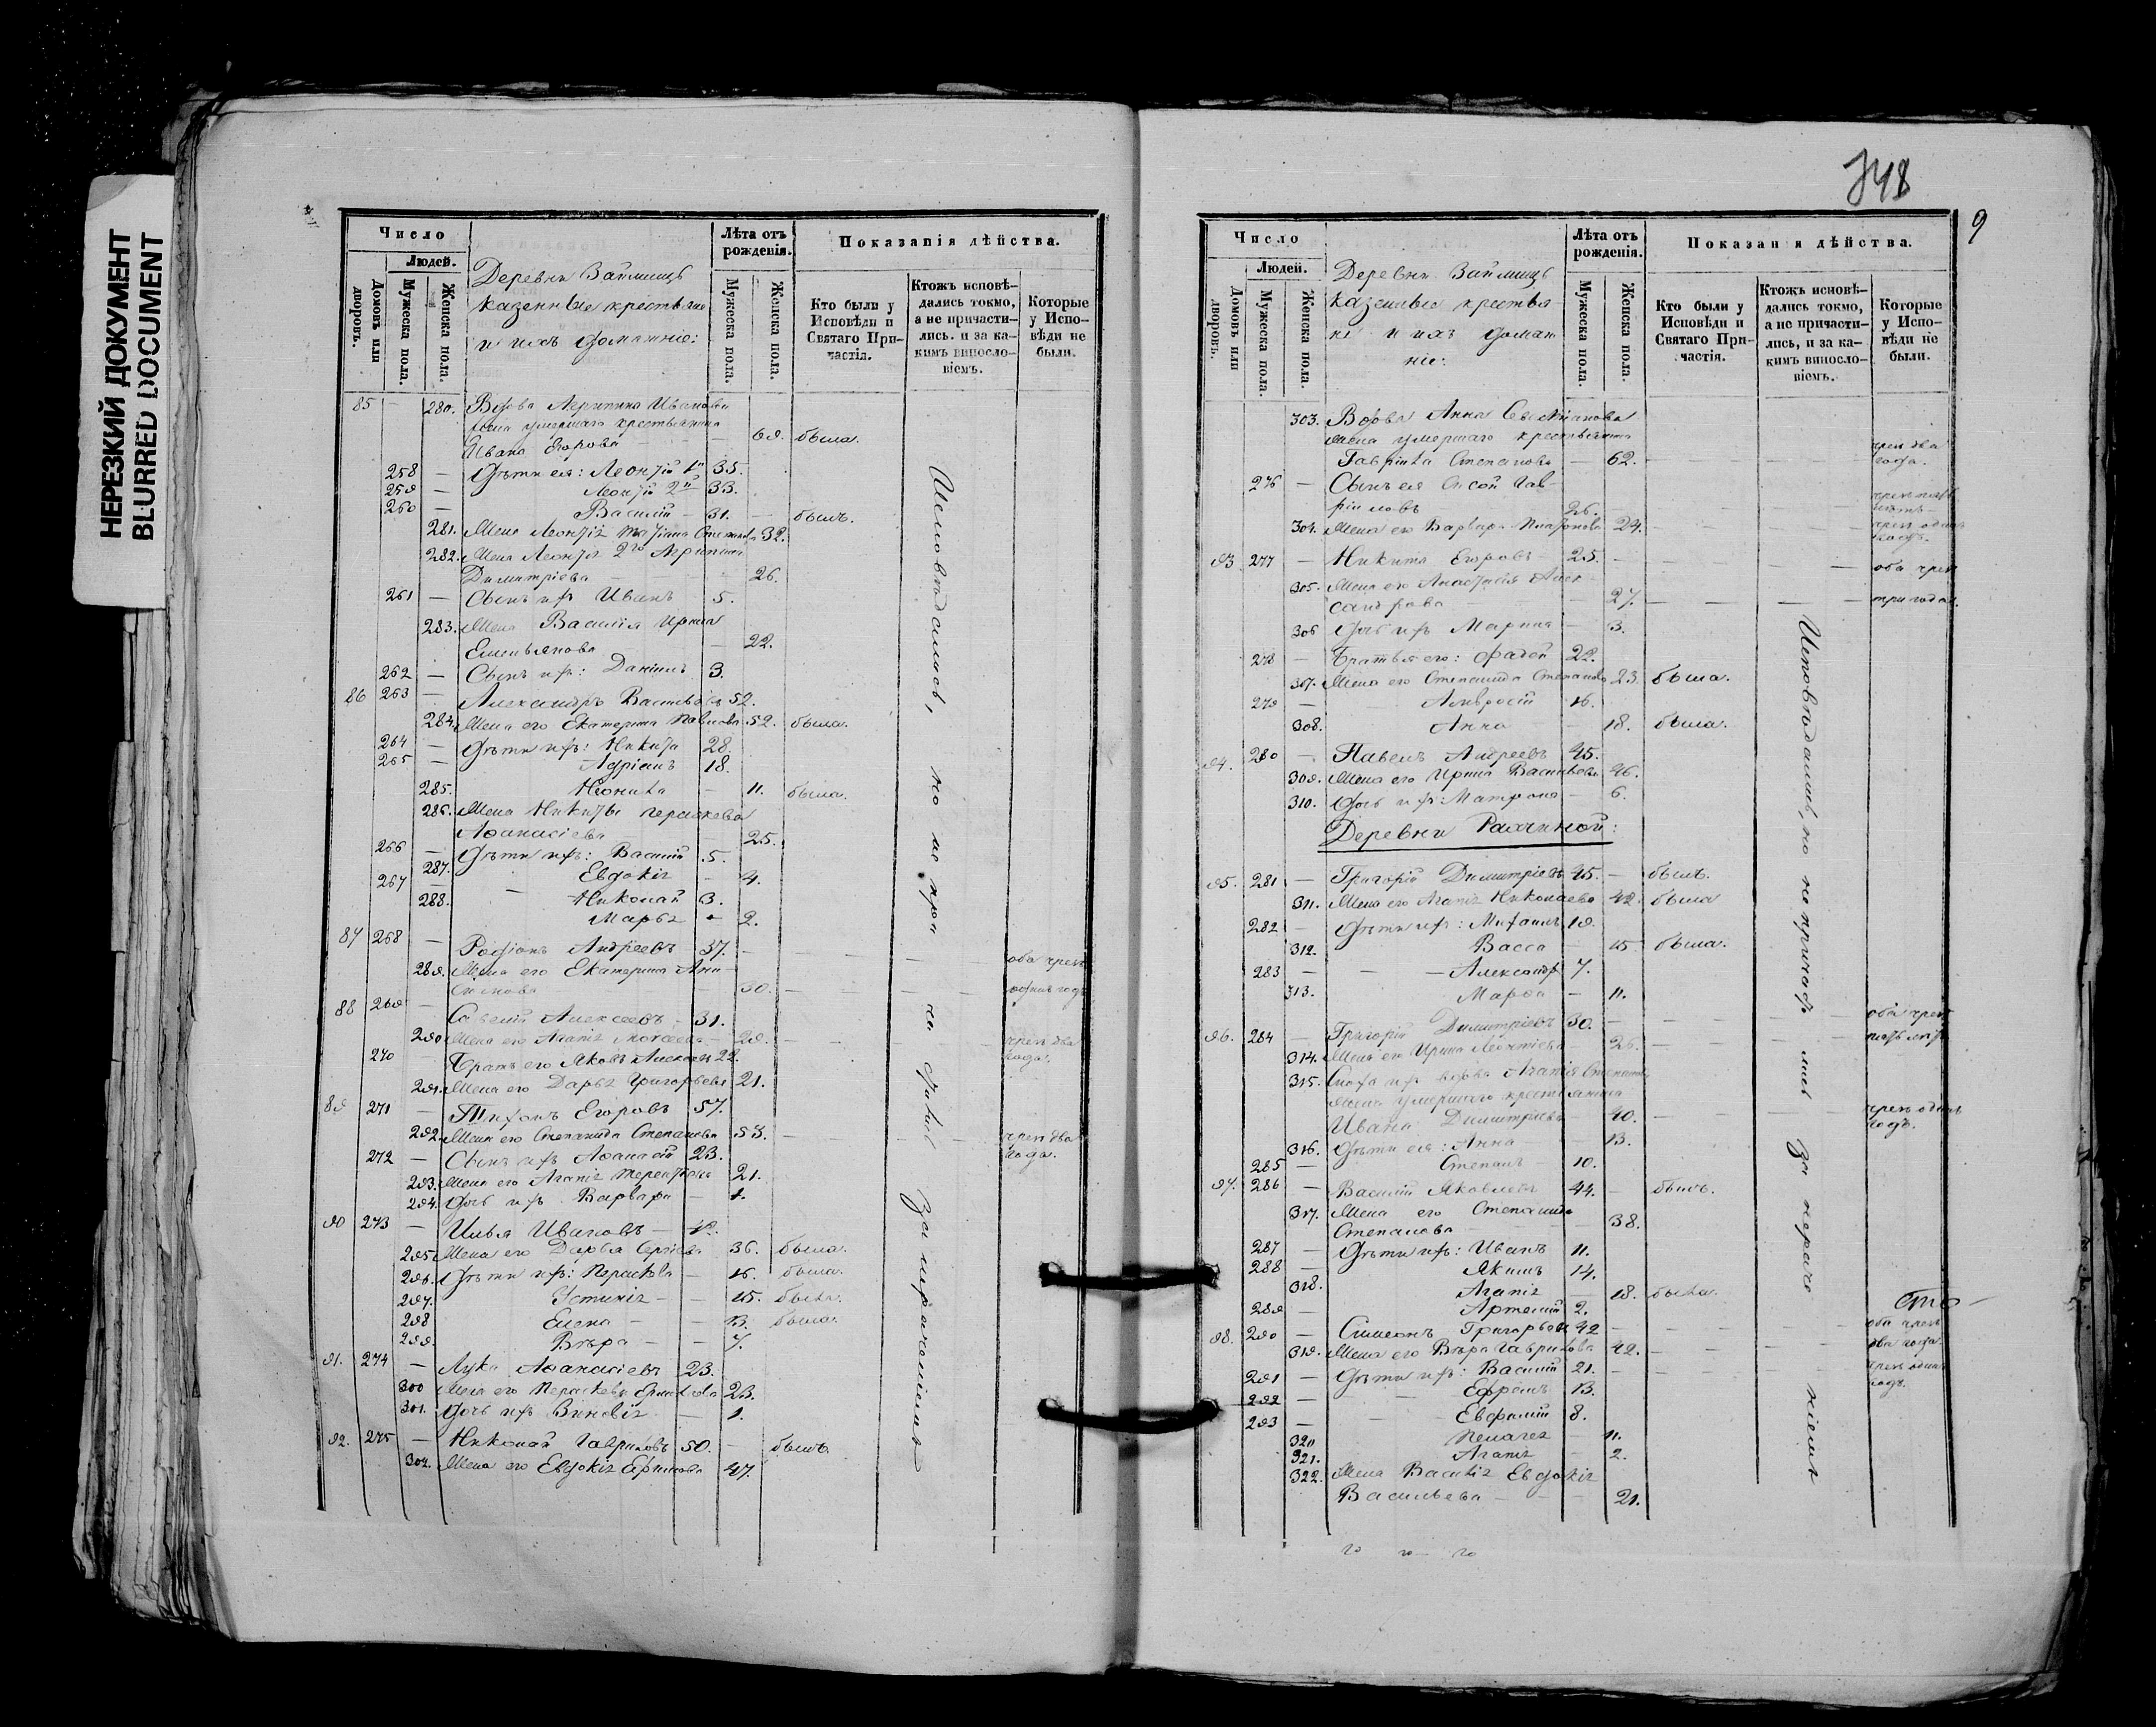 НЕРЕЗКИЙ ДОКУМЕНТ
BLURRED DOCUMENT
Число
Людей.
Домовъ или дворовъ.
Мужеска пола.
Женска пола.
Деревни Займищъ
казенные крестьяне
и ихъ домашніе:
Лѣта отъ рожденія.
Мужеска пола.
Женска пола.
Показанія дѣйства.
Кто были у Исповѣди и Святаго Причастія.
Ктожъ исповѣдались токмо, а не причастились. и за какимъ винословіемъ.
Которые у Исповѣди не были.
85 — 280. Вдова Агрипина Иванова
жена умершаго крестьянина
Ивана Егорова — 69. была.
258 — Дѣти ея: Леонтій 1й 35.
259 — Леонтій 2й 33.
260 — Василій — 31. — былъ.
281. Жена Леонтія Татіана 32.
282. Жена Леонтія 2го Агрипина
Димитріева — 26.
261 — Сынъ ихъ Иванъ 5.
283. Жена Василія Ирина
Емельянова — 22.
262 — Сынъ ихъ: Даніилъ 3.
86 263 — Александръ Васильевъ 52.
284. Жена его Екатерина Павлова 52. была.
264 — Дѣти ихъ: Никита 28.
265 — Адріанъ 18.
285. — 11. была.
286. Жена Никиты Параскева
Аѳанасіева — 25.
266 — Дѣти ихъ: Василій 5.
287. Евдокія — 4.
267 — Николай 3.
288. Марья — 2.
87 268 — Родіонъ Андреевъ — 37. — оба чрезъ
289. Жена его Екатерина
— 30. — одинъ годъ
88 269 — Савелій Алексеевъ — 31.
290 Жена его Агапія Моисеева — 29. — чрезъ два года.
270 — Братъ его Яковъ Алексеевъ 22.
291. Жена его Дарья Григорьева 21.
89 271 — Тихонъ Егоровъ 57.
292. Жена его Степанида Степанова 53. — чрезъ два года.
272 — Сынъ ихъ Аѳанасій 23.
293. Жена его Агапія Терентьева 21.
294. Дочь ихъ Варвара — 1.
90 273 — Илья Ивановъ —
295. Жена его Дарья Сергіева 36. была.
296. Дѣти ихъ: Параскева — 16. была.
297. Устинія — 15. была.
298 Елена — 13. была.
299. Вѣра — 7.
91. 274 — Лука Аѳанасіевъ 23.
300 Жена его Параскева 23.
301. Дочь ихъ Зиновія — 1.
92. 275 — Николай Гавриловъ 50. — былъ.
302. Жена его Евдокія 47.
Исповѣдались, но не причастились за нерачениемъ
748
9
Число
Людей.
Домовъ или дворовъ.
Мужеска пола.
Женска пола.
Деревни Займищъ
казенные крестья-
не и ихъ домаш-
ніе:
Лѣта отъ рожденія.
Мужеска пола.
Женска пола.
Показан я дѣйства.
Кто были у Исповѣди и Святаго Причастія.
Ктожъ исповѣдались токмо, а не причастились, и за какимъ винословіемъ.
Которые у Исповѣди не были.
303. Вдова Анна
жена умершаго крестьянина
Гавріила Степанова — 62. — чрезъ два года.
276 — Сынъ ея Сисой Гав-
ріиловъ 26.
304. Жена его Варвара 24. — чрезъ одинъ годъ.
93 277 — Никита Егоровъ — 25. — оба чрезъ
305. Жена его Анастасія Алек-
сандрова — 27. — три года.
306 Дочь ихъ Марина — 3.
278 — Братья его: Фадей 22.
307. Жена его Степанида Степанова 23. была.
279 — Амвросій 16.
308. Анна — 18. была.
94. 280 — Павелъ Андреевъ 45.
309. Жена его Ирина Васильева 46.
310. Дочь ихъ: Матрона — 6.
Деревни
95. 281 — Григорій Димитріевъ 45. — былъ.
311. Жена его Агапія Николаева 42. была
282 — Дѣти ихъ: Михаилъ 19.
312. Васса — 15. была.
283 — Александръ 7.
313. Марѳа — 11.
96. 284 — Григорій Димитріевъ 30. — оба чрезъ
314. Жена его Ирина Леонтіева — 26. —
315. Сноха ихъ вдова Агапія
жена умершаго крестьянина
Ивана Димитріева — 40. — чрезъ одинъ годъ.
316. Дѣти ея: Анна — 13.
285 — Степанъ — 10.
97. 286 — Василій Яковлевъ 44. — былъ.
317. Жена его Степанида
Степанова — 38.
287 — Дѣти ихъ: Иванъ 11.
288 — Якимъ 14.
318. Агапія — 18. была.
289 — Артемій 2.
98. 290 — Симеонъ Григорьевъ 42 — оба чрезъ
319. Жена его Вѣра Гаврилова 42. — два года.
291 — Дѣти ихъ: Василій 21. — чрезъ одинъ годъ.
292 — Ефремъ 13.
293 — Евфимій 8.
320 Пелагея — 11.
321. Агапія — 2.
322. Жена Василія Евдокія
Васильева — 21.
Исповѣдались, но не причастились за нерачениемъ